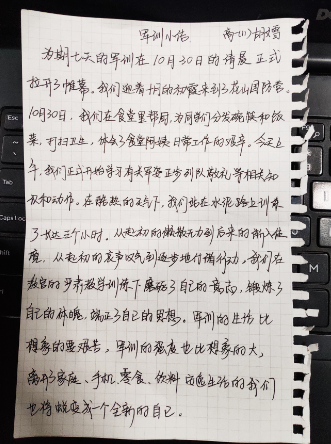 军训小结 高一(1) 胡雪
为期七天的军训在10月30日的清晨正式
拉开了帷幕。我们迎着十月的和霞来到了花山国防营。
10月30日，我们在食堂里帮厨，为同学们分发碗筷和饭
菜，打扫卫生，体会了食堂阿姨日常工作的艰辛。今天上
午，我们正式开始学习有关军姿正步列队敬礼等相关知
识和动作。在酷热的天气下，我们站在水泥路上训练
了长达三个小时。从起初的懒散无力到后来的渐入佳
境，从起初的哀声叹气到逐步地付诸行动，我们在
教官的严肃教学训练下磨砺了自己的意志，锻炼了
自己的体魄，端正了自己的思想。军训的生活比
想象的要艰苦，军训的强度也比想象的大，
离开了家庭、手机、零食、饮料的逸生活的我们
也将蜕变成一个全新的自己。
Tab
Caps Lo